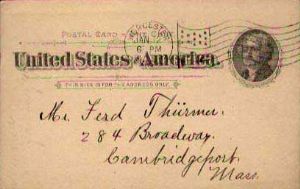 POSTAL CARD - ONE CENT
WORCESTER
JAN
6 PM
United States of America.
THIS SIDE IS FOR THE ADDRESS ONLY.
Mr. Ferd Thürmer.
284 Broadway.
Cambridgeport.
Mass.